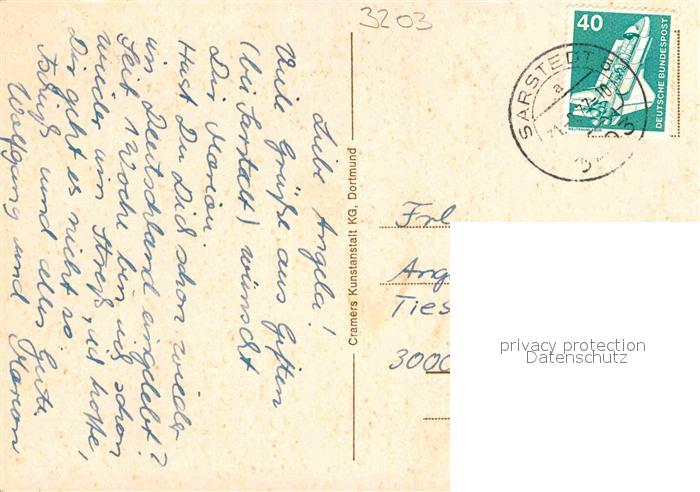 Liebe Angela!
Viele Grüße aus Giften
(bei Sarstedt) wünscht
Dir Marion.
Hast Du Dich schon wieder
in Deutschland eingelebt?
Seit 1 Woche bin ich schon
wieder im Streß, ich hoffe,
Dir geht es nicht so.
Tschüß und alles Gute
Wolfgang und Marion
Cramers Kunstanstalt KG, Dortmund
3203
40
DEUTSCHE BUNDESPOST
SARSTEDT
3203
Frl
Ang
Ties
3000
privacy protection
Datenschutz